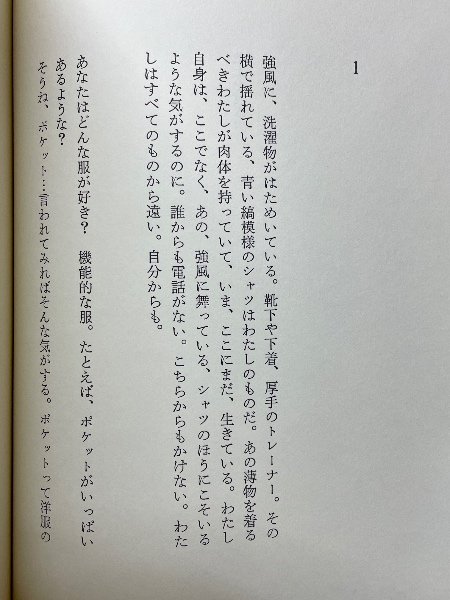 1
強風に、洗濯物がはためいている。靴下や下着、厚手のトレーナー。その
横で揺れている、青い縞模様のシャツはわたしのものだ。あの薄物を着る
べきわたしが肉体を持っていて、いま、ここにまだ、生きている。わたし
自身は、ここでなく、あの、強風に舞っている、シャツのほうにこそいる
ような気がするのに。誰からも電話がない。こちらからもかけない。わた
しはすべてのものから遠い。自分からも。
あなたはどんな服が好き?　機能的な服。たとえば、ポケットがいっぱい
あるような?
そうね、ポケット…言われてみればそんな気がする。ポケットって洋服の